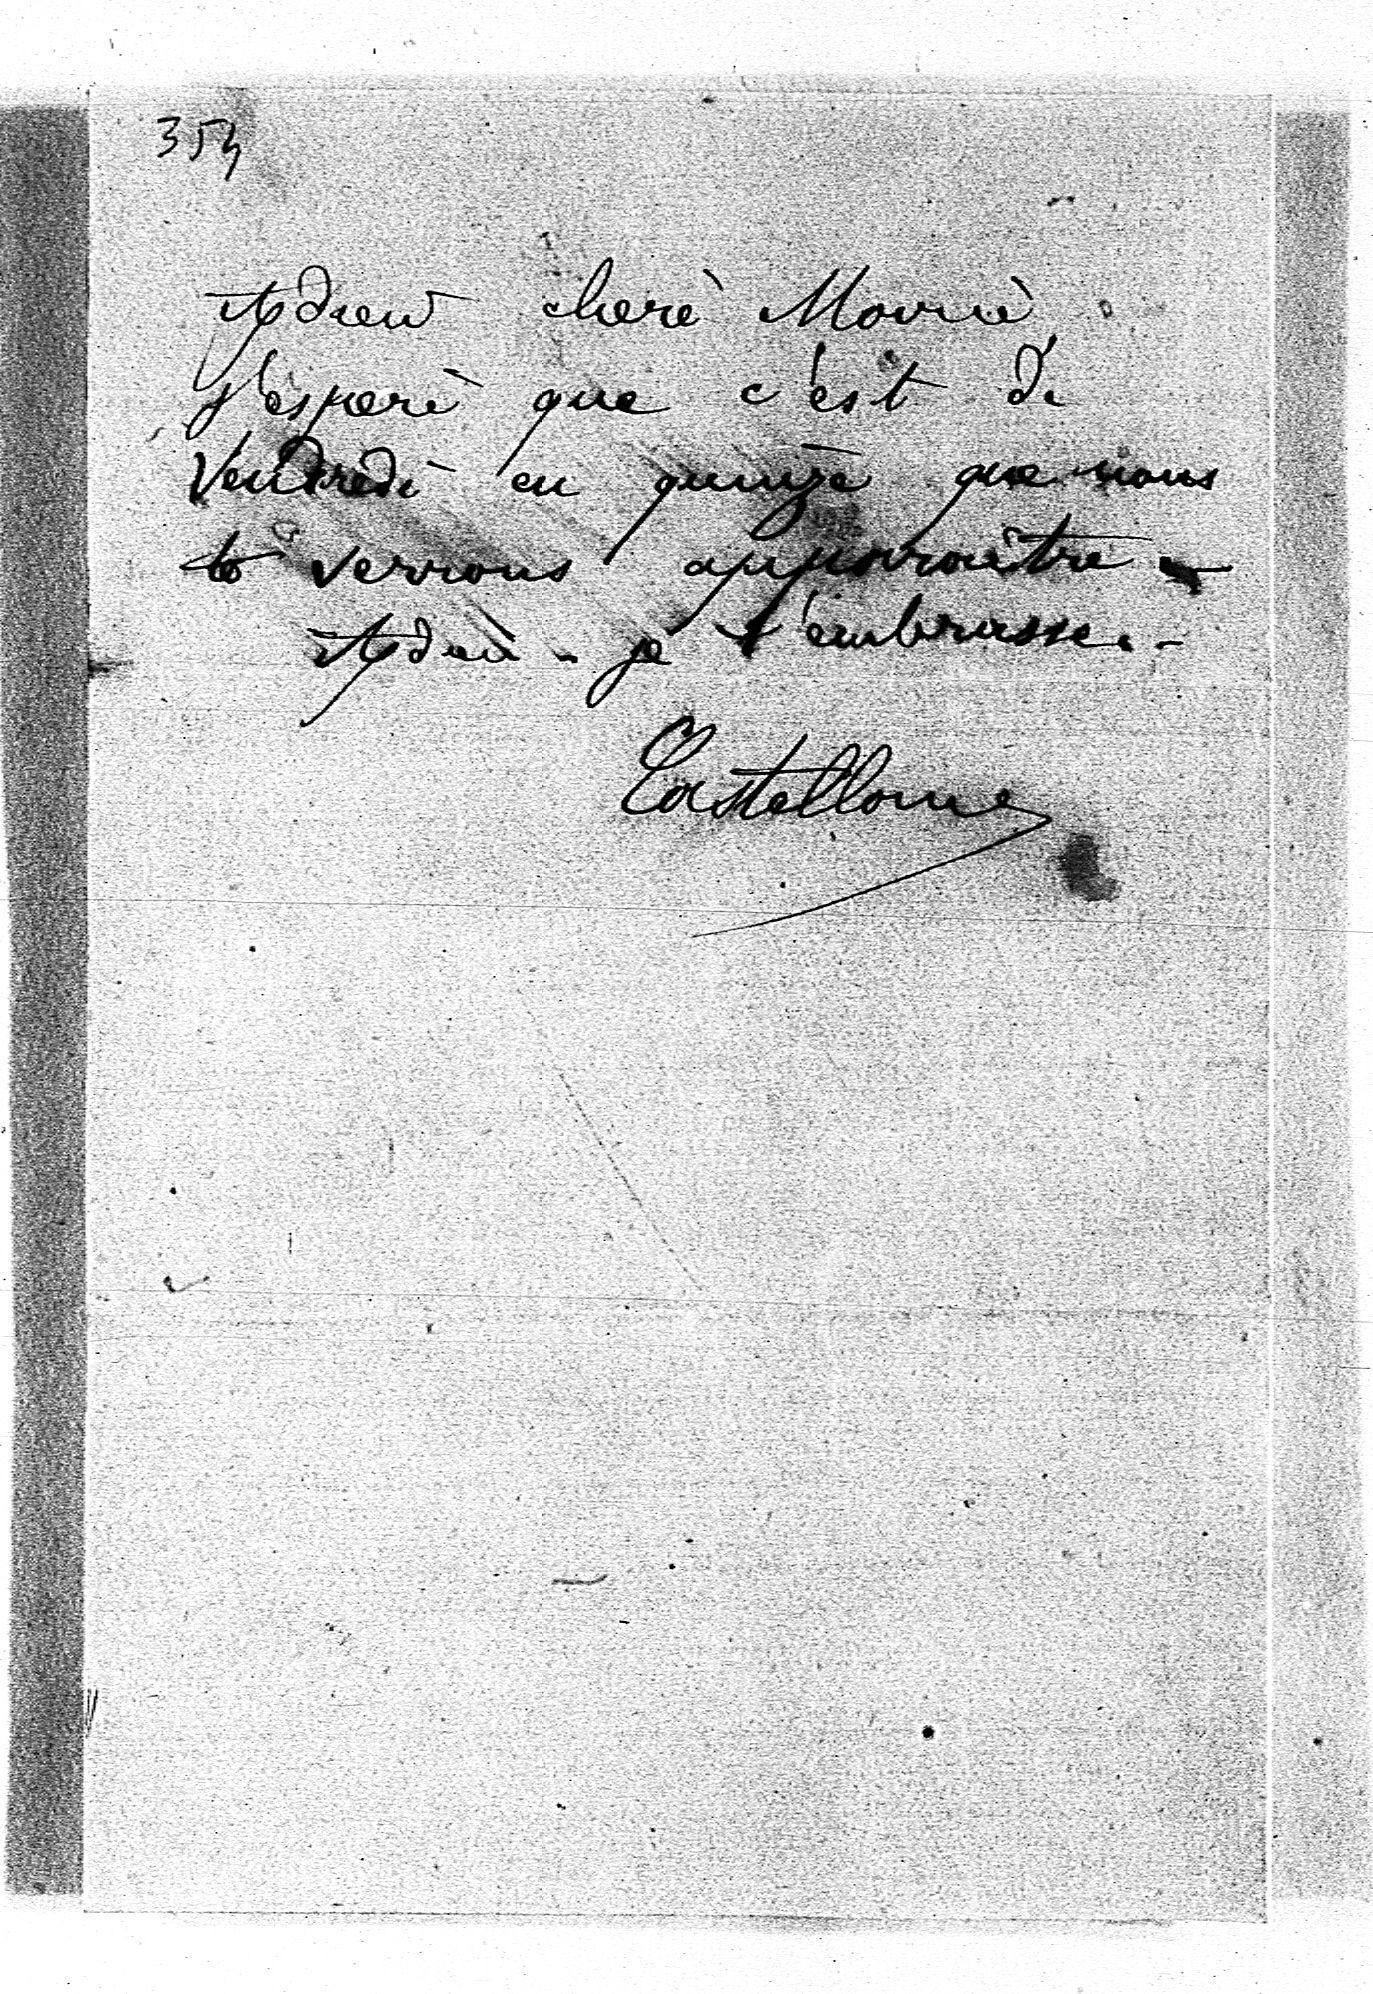 354
Adieu chere Marie,
J'espere que c'est de
Vendredi en quinze que nous
te verrons apparaître -
Adieu - je t'embrasse. -
Castellane